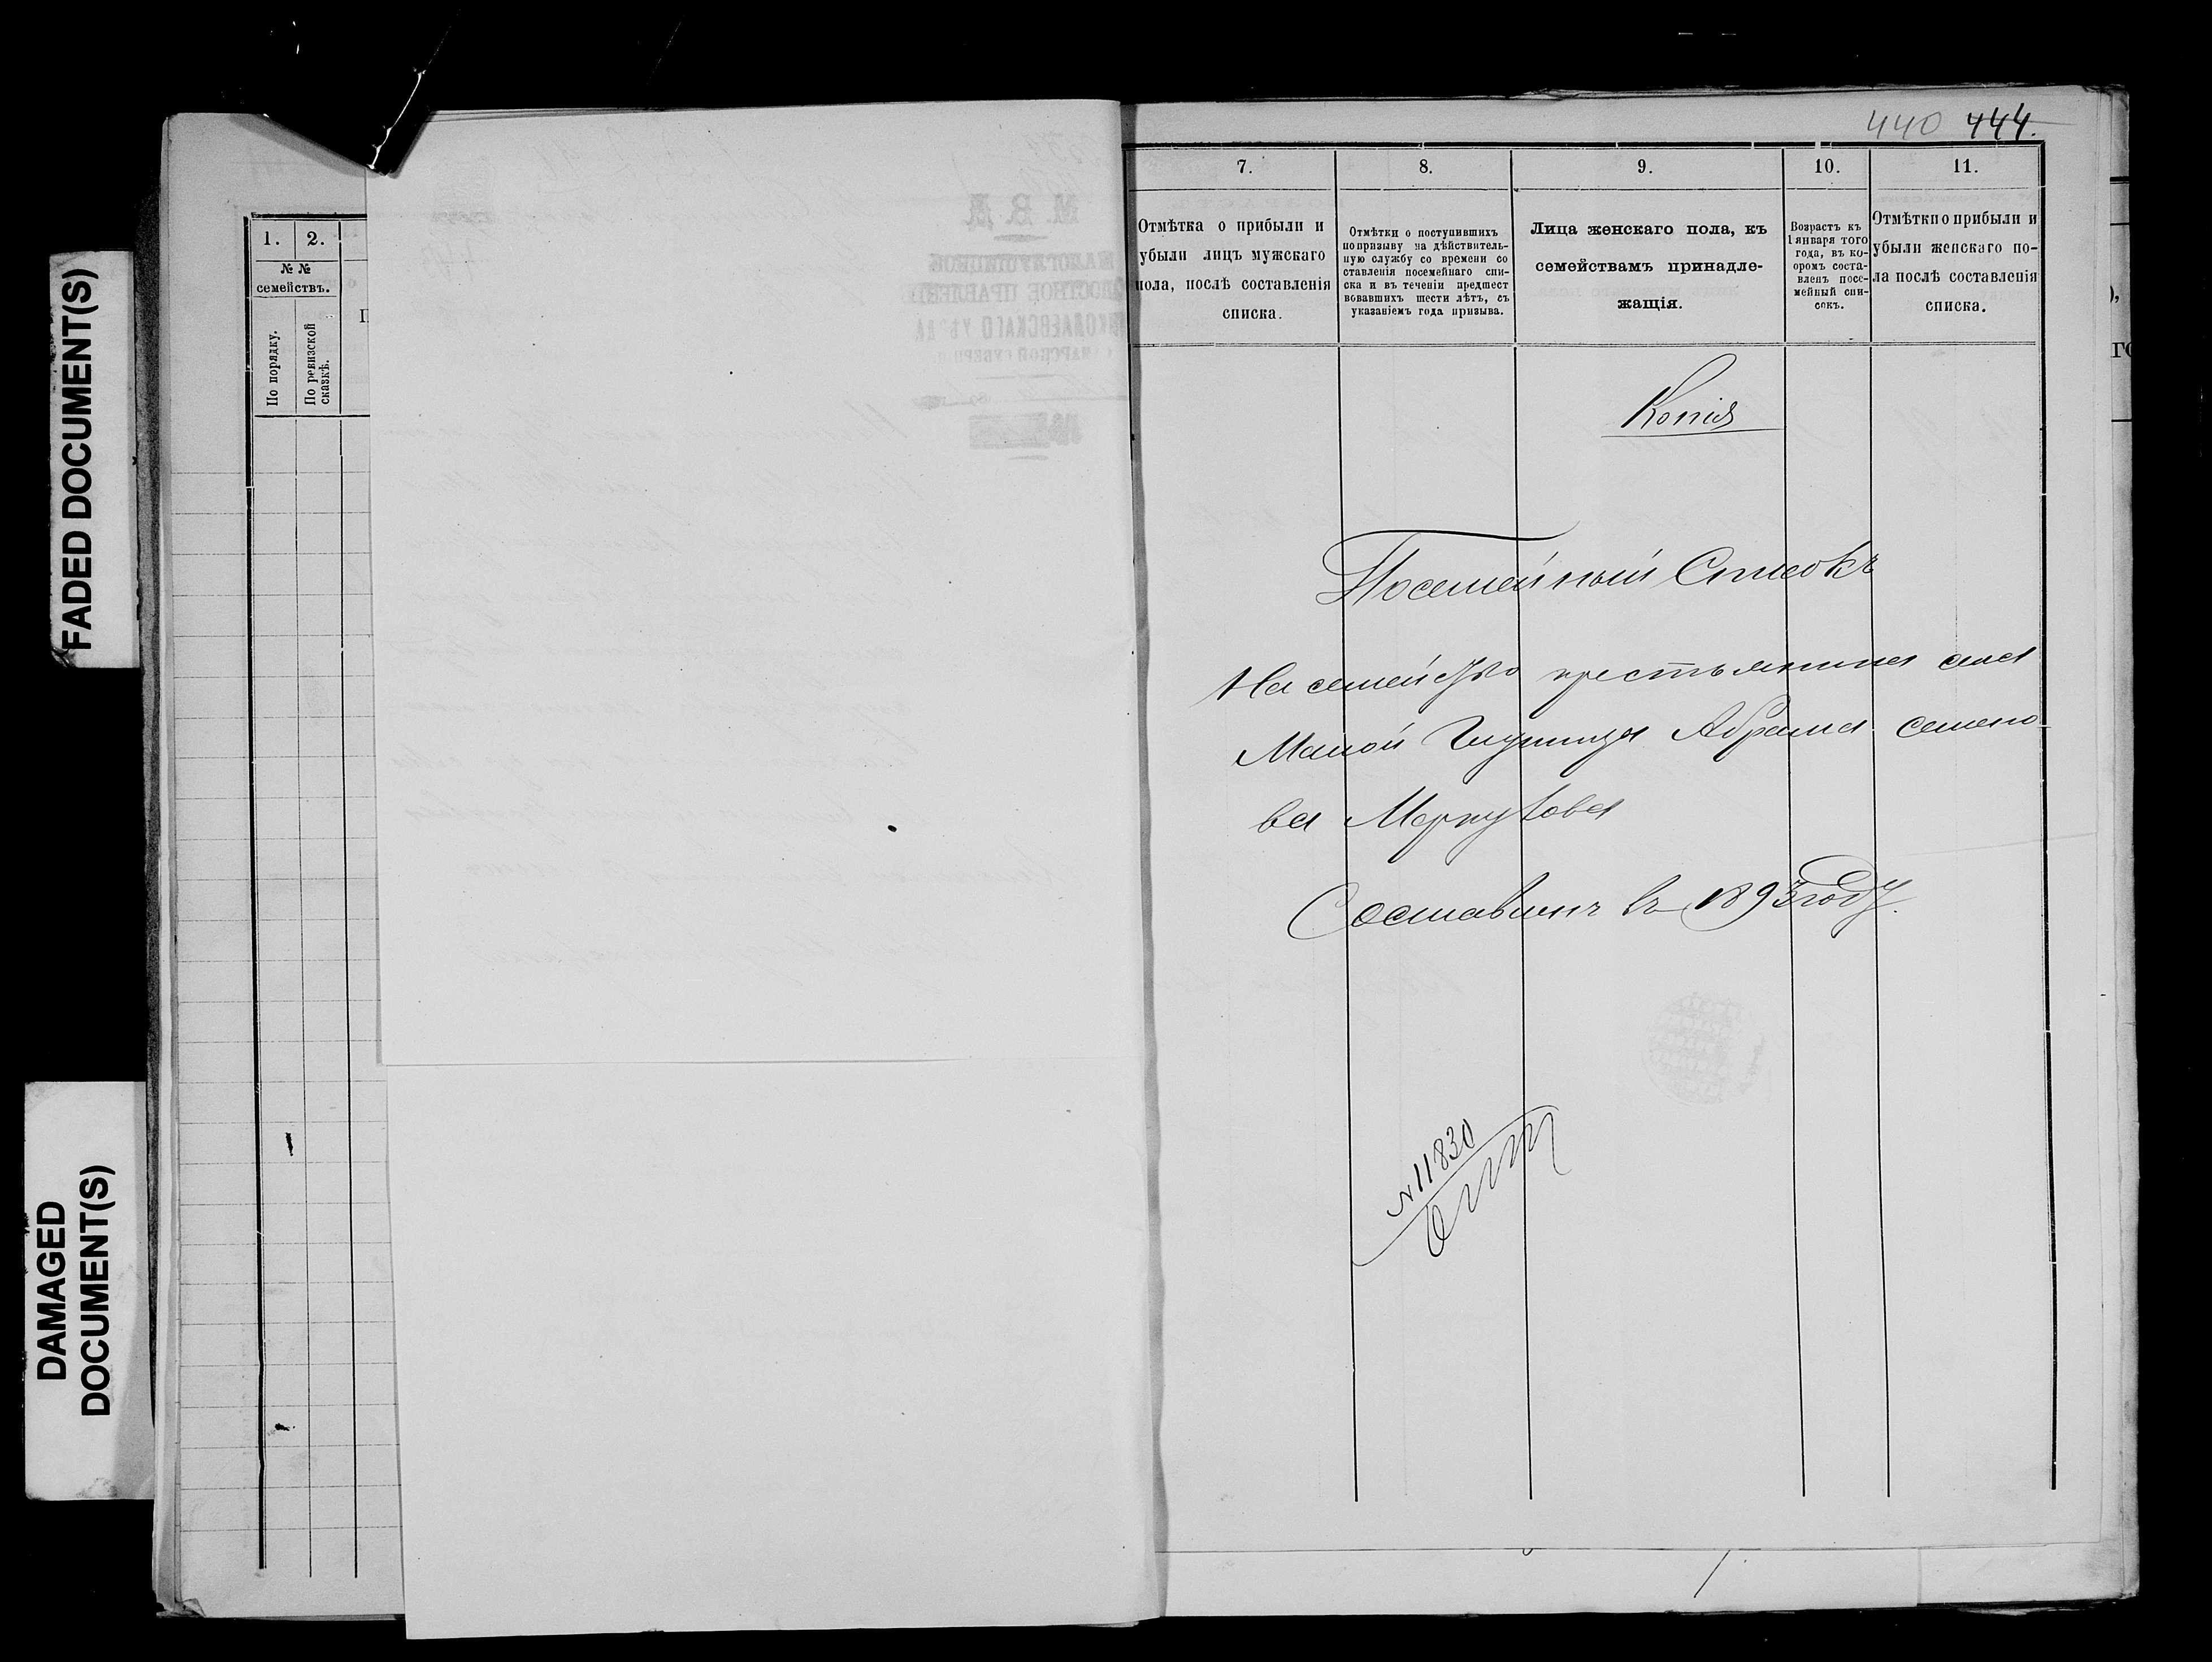 FADED DOCUMENT(S)
DAMAGED
DOCUMENT(S)
1. 2.
№ №
семействъ.
По порядку.
По ревизской
сказкѣ.
440 444.
7. 8. 9. 10. 11.
Отмѣтка о прибыли и
убыли лицъ мужскаго
пола, послѣ составленія
списка.
Отмѣтки о поступившихъ
по призыву на дѣйствитель-
ную службу со времени со
ставленія посемейнаго спи-
ска и въ теченіи предшест
вовавшихъ шести лѣтъ, съ
указаніемъ года призыва.
Лица женскаго пола, къ
семействамъ принадле-
жащія.
Возрастъ къ
1 января того
года, въ ко-
оромъ соста-
вленъ посе-
мейный спи-
сокъ.
Отмѣтки о прибыли и
убыли женскаго по-
ла послѣ составленія
списка.
Копія
Посемейный Списокъ
На семейство крестьянина села
Малой Глушицы Абрама семено
ва Меркулова
Составленъ въ 1893 году.
№ 11830